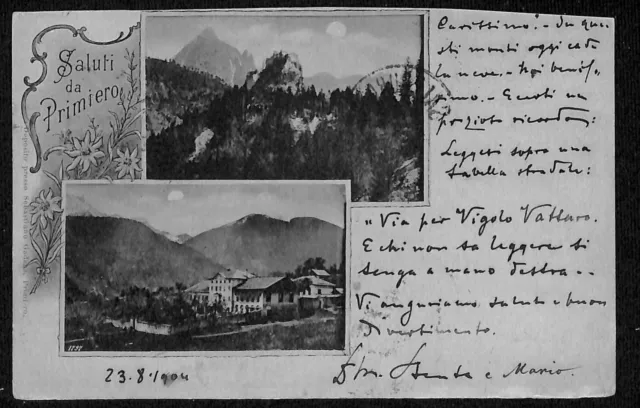 Saluti
da
Primiero
Carissimo! - Su que-
sti monti oggi cade
la neve. - Noi benis-
simo. - Eccoti un
prezioto ricordo:
Leggesi sopra una
tabella stradale:
"Via per Vigolo Vattaro.
E chi non sa leggere si
tenga a mano destra..
Vi auguriamo salute e buon
divertimento.
e Mario.
23.8.1904
1797